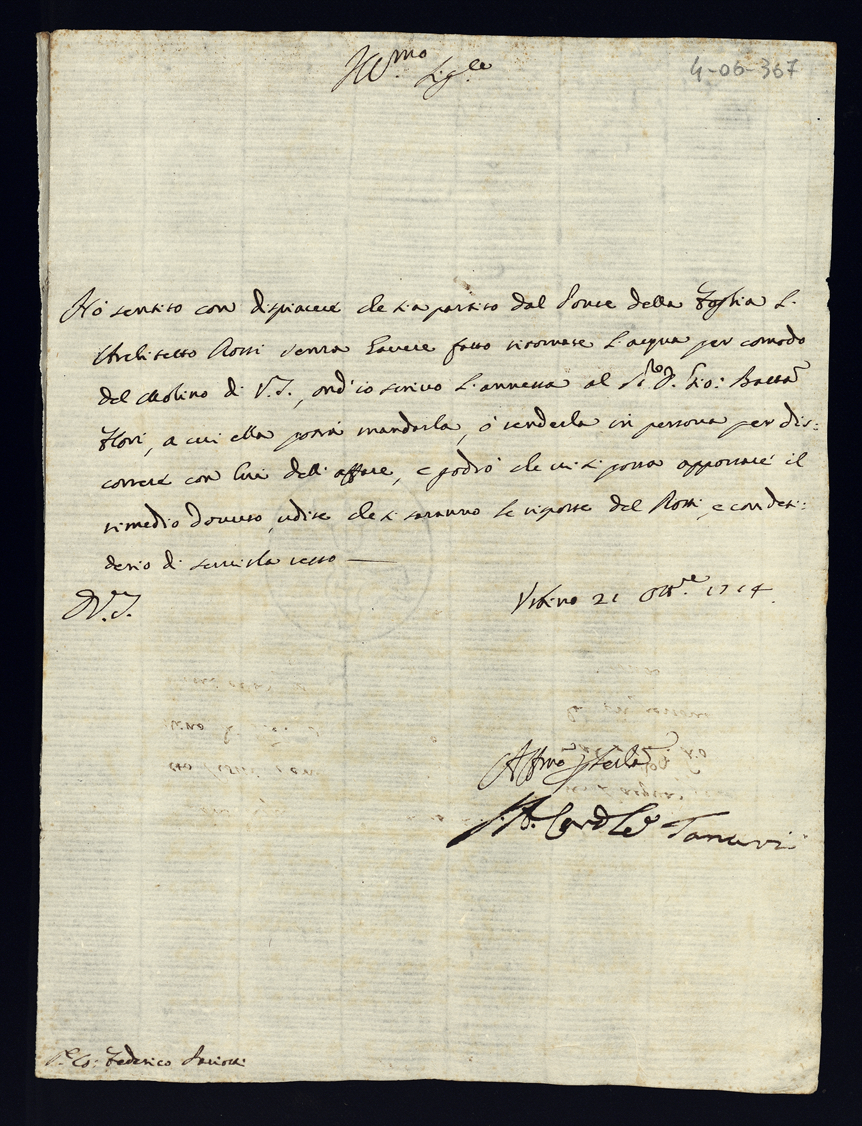 Ill.mo Sig.re
4-06-367
Hò sentito con dispiacere che sia partito dal Ponte della Foglia l'
Architetto Rossi senza havere fatto ritornare l'acqua per comodo
del Molino di V.S., ond'io scrivo l'annessa al Sig.r D. Gio: Batta
Flori, a cui ella potrà mandarla, ò renderla in persona per dis=
correre con lui dell'affare, e godrò che vi si possa apportare il
rimedio dovuto, udite che si saranno le risposte del Rossi, e con desi=
derio di servirla resto —
D V.S.
Urbino 21 Ott.re 1714
Aff.mo per
S. A. Card. Le Tanari
S.r Co: Federico